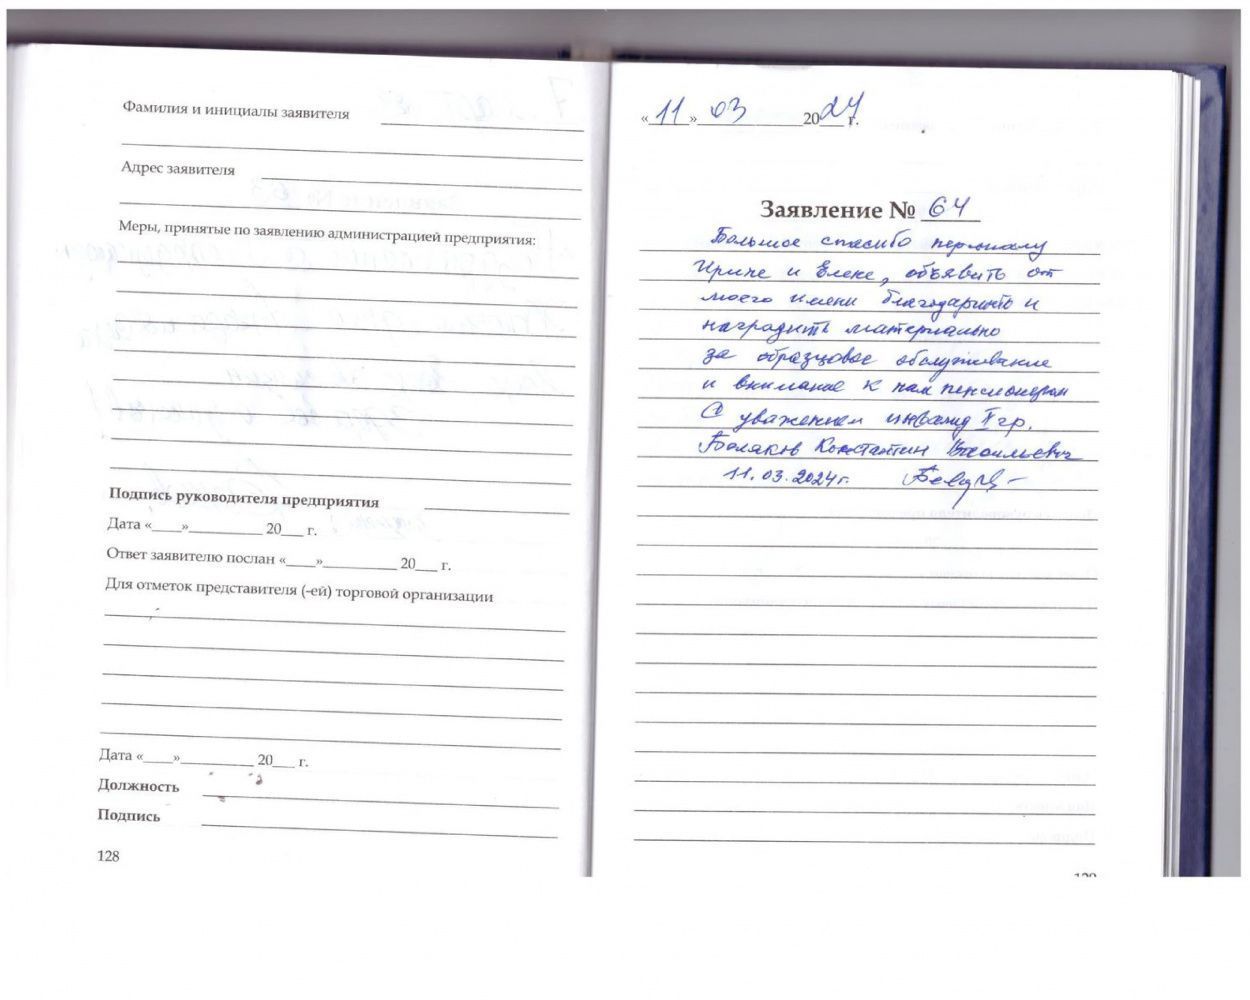 Фамилия и инициалы заявителя
Адрес заявителя
Меры, принятые по заявлению администрацией предприятия:
Подпись руководителя предприятия
Дата «____»__________ 20___ г.
Ответ заявителю послан «____»__________ 20___ г.
Для отметок представителя (-ей) торговой организации
Дата «____»__________ 20___ г.
Должность
Подпись
128
«11» 03 2024 г.
Заявление № 64
Большое спасибо персоналу
Ирине и Елене, объявить от
моего имени благодарность и
наградить материально
за образцовое обслуживание
и внимание к нам пенсионерам
С уважением инвалид II гр.
Константин Васильевич
11.03.2024г.
129